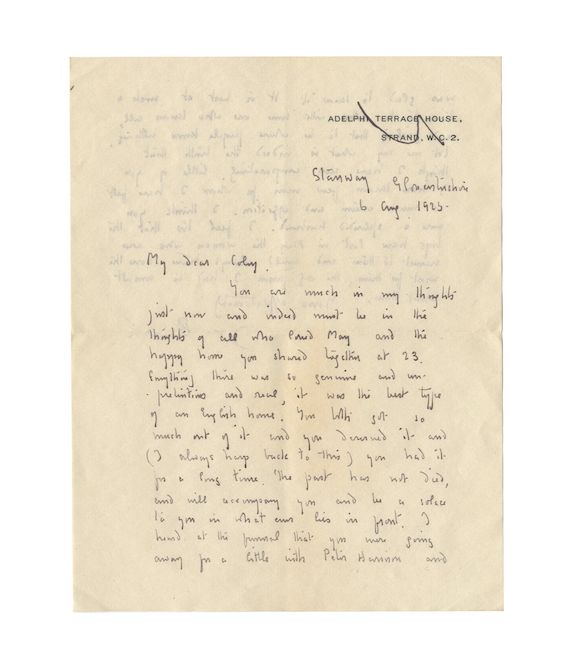 ADELPHI TERRACE HOUSE,
STRAND. W.C.2.
Stanway Gloucestershire
6 Aug. 1925.
My dear Coley.
You are much in my thoughts
just now and indeed must be in the
thoughts of all who loved May and the
happy home you shared together at 23.
Everything there was so genuine and un-
pretentious and real, it was the best type
of an English home. You both got so
much out of it and you deserved it and
(I always harp back to this) you had it
for a long time. The past has not died,
and will accompany you and be a solace
to you in what ever lies in front. I
heard at the funeral that you were going
away for a little with Peter Harrison and